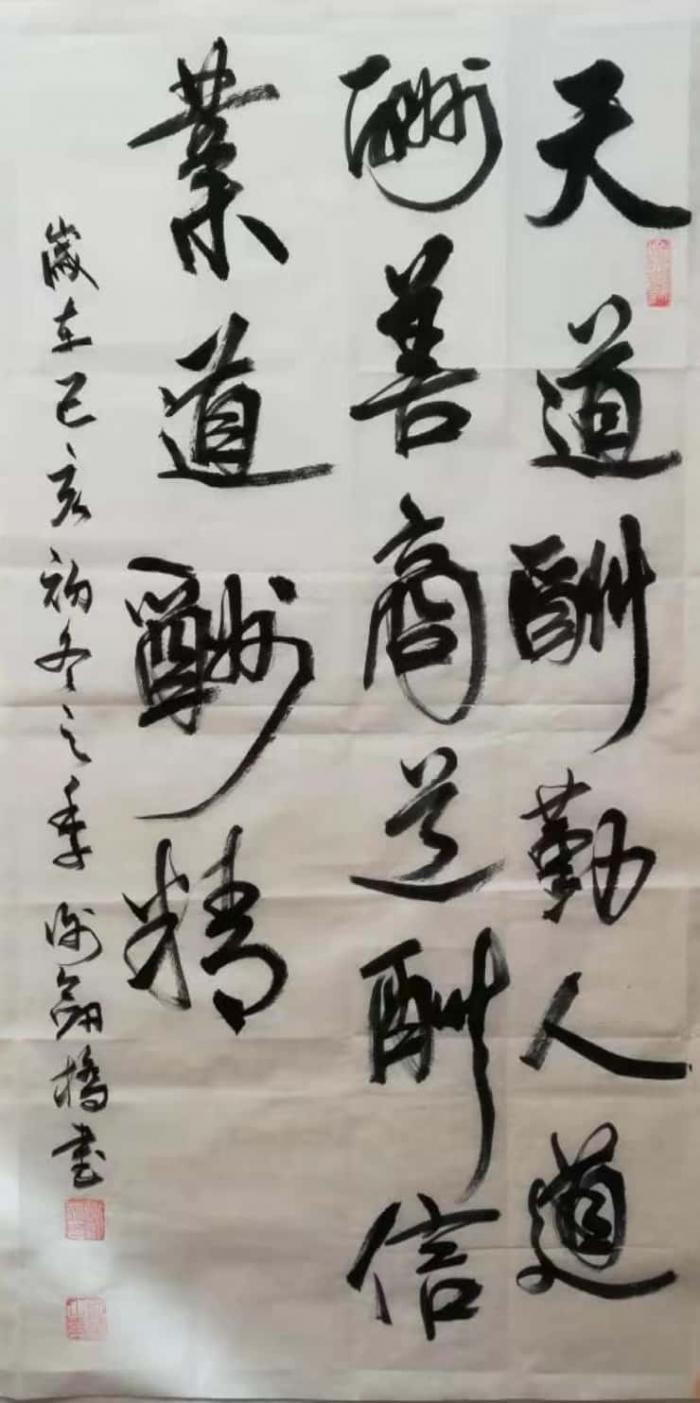 天道酬勤人道
酬善商道酬信
業道酬精
歲在己亥初冬之季 橋書